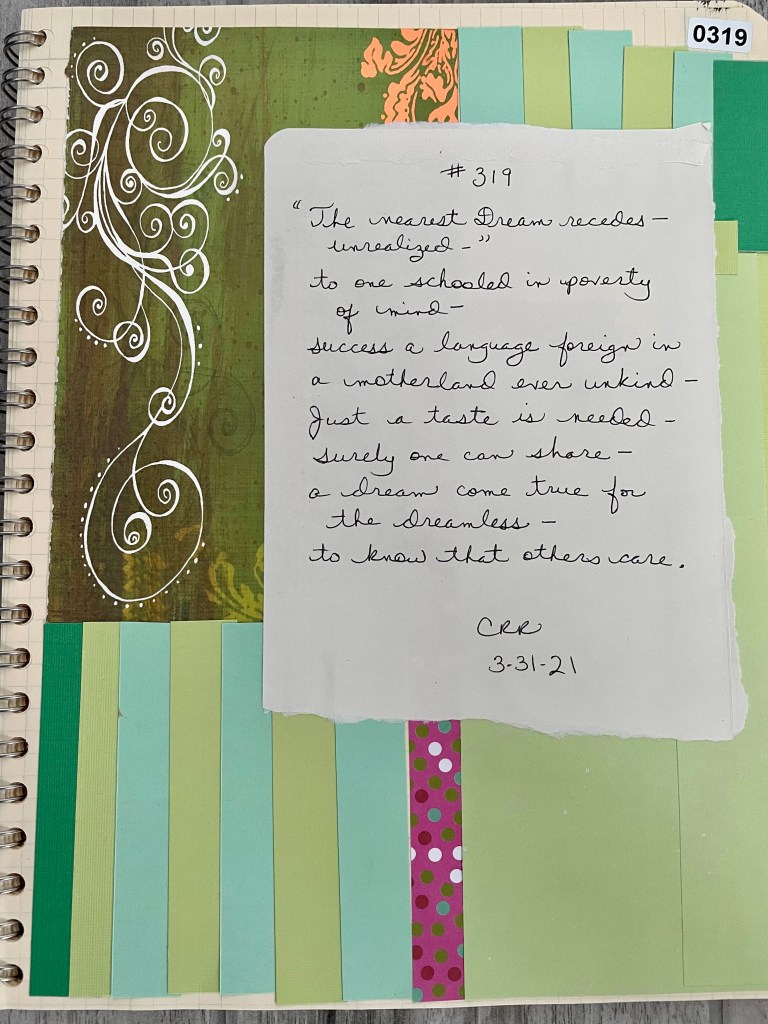 0319
# 319
"The nearest Dream recedes –
unrealized – "
to one schooled in poverty
of mind –
success a language foreign in
a motherland ever unkind –
Just a taste is needed –
surely one can share –
a dream come true for
the dreamless –
to know that others care.
CRR
3-31-21